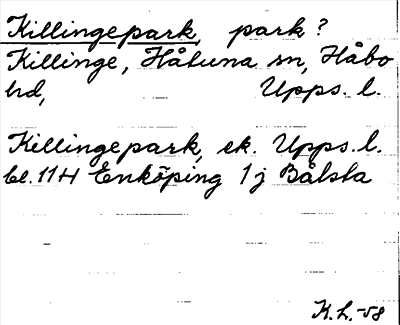 Killingepark, park?
Killinge, Håtuna sn, Håbo
hd, Upps. l.
Killingepark, ek. Upps. l.
bl. 11H Enköping 1j Bålsta
K.L.-58